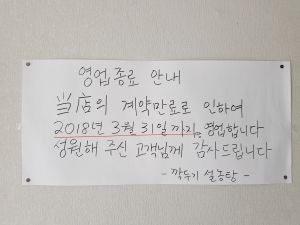 영업종료 안내
当店의 계약만료로 인하여
2018년 3월 31일까지 영업합니다
성원해 주신 고객님께 감사드립니다
- 깍두기 설농탕 -